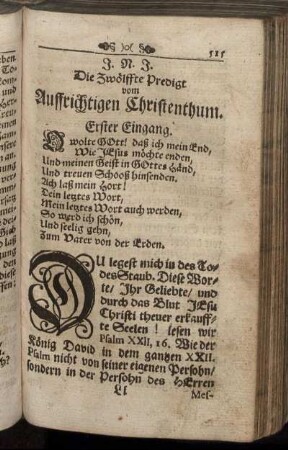 515
J. N. J.
Die Zwölffte Predigt
vom
Auffrichtigen Christenthum.
Erster Eingang.
O wolte GOtt! daß ich mein End,
Wie JEsus möchte enden,
Und meinen Geist in GOttes Händ,
Und treuen Schooß hinsenden.
Ach laß mein Hort!
Dein letztes Wort,
Mein letztes Wort auch werden,
So werd ich schön,
Und seelig gehn,
Zum Vater von der Erden.
DU legest mich in des To-
des Staub. Diese Wor-
te/ Ihr Geliebte/ und
durch das Blut JEsu
Christi theuer erkauff-
te Seelen! lesen wir
Psalm XXII, 16. Wie der
König David in dem gantzen XXII.
Psalm nicht von seiner eigenen Persohn/
sondern in der Persohn des HErren
Ll
Mes-